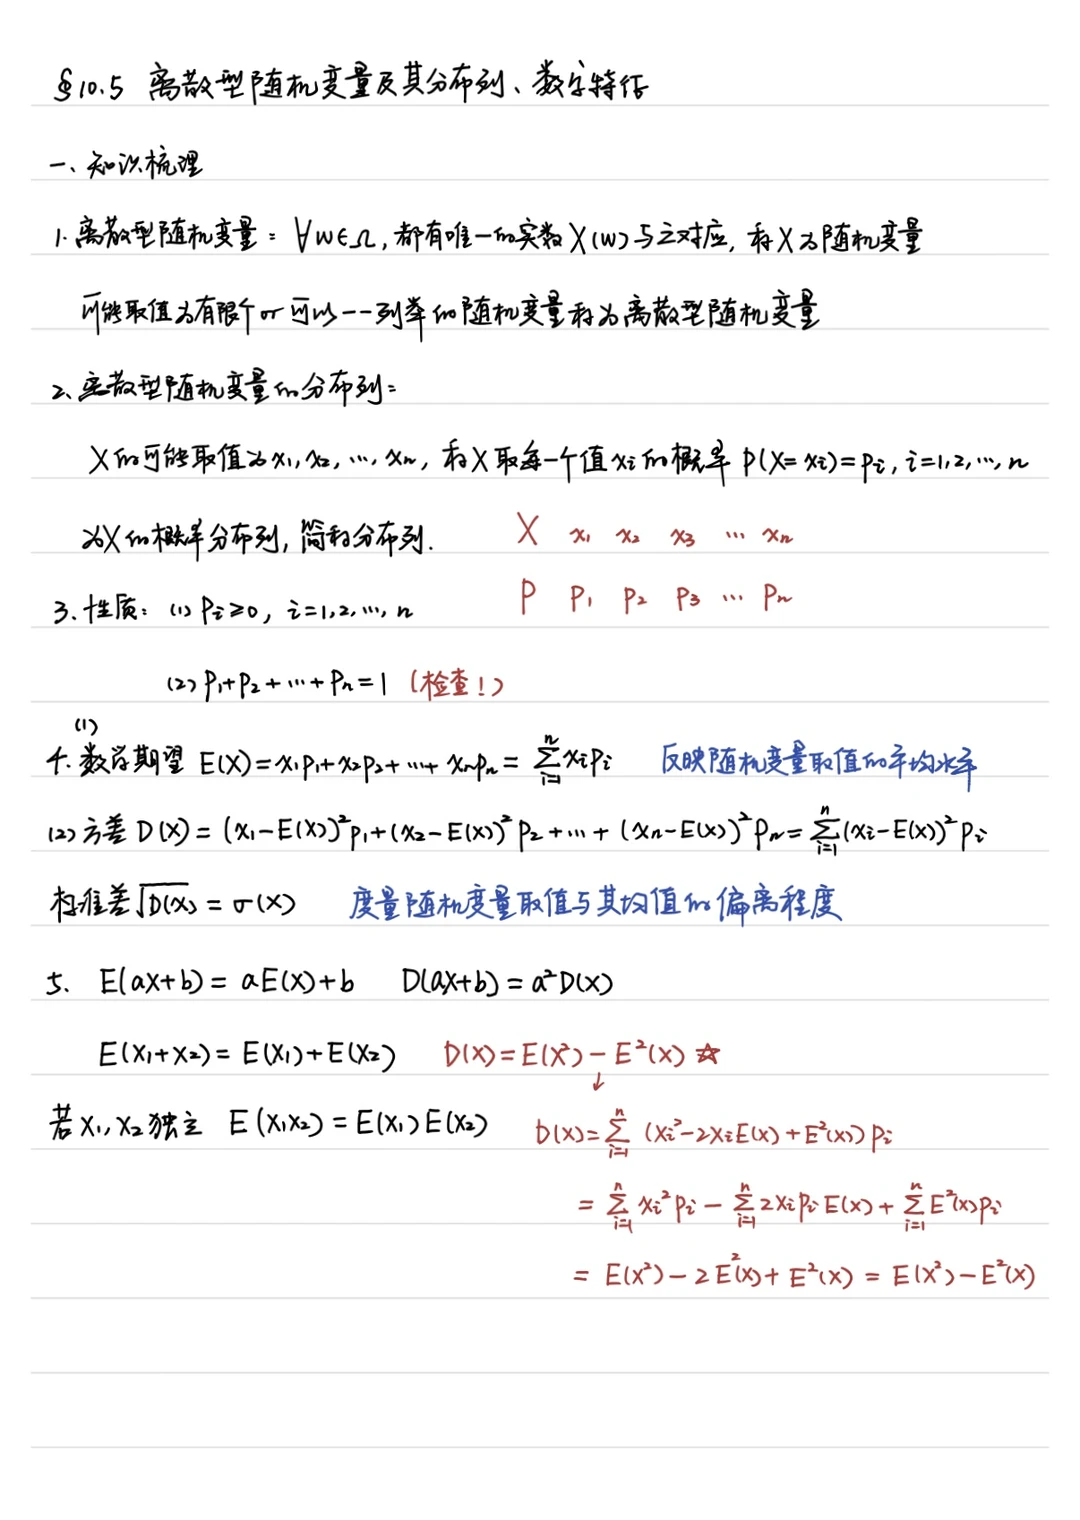 §10.5 离散型随机变量及其分布列、数字特征
一、知识梳理
1. 离散型随机变量：∀w∈Ω，都有唯一的实数X(w)与之对应，称X为随机变量
可能取值为有限个or可以一一列举的随机变量称为离散型随机变量
2、离散型随机变量的分布列：
X的可能取值为x₁, x₂, …, xₙ，称X取每一个值xᵢ的概率 P(X=xᵢ)=pᵢ, i=1,2,…,n
为X的概率分布列，简称分布列.
X x₁ x₂ x₃ … xₙ
P P₁ P₂ P₃ … Pₙ
3.性质：(1) Pᵢ≥0, i=1,2,…,n
(2) P₁+P₂+…+Pₙ=1 (检查！)
(1)
4. 数学期望 E(X)=x₁p₁+x₂p₂+…+xₙpₙ=∑ⁿᵢ₌₁xᵢpᵢ 反映随机变量取值的平均水平
(2) 方差 D(X)=(x₁-E(X))²p₁+(x₂-E(X))²p₂+…+(xₙ-E(X))²Pₙ=∑ⁿᵢ₌₁(xᵢ-E(X))²pᵢ
标准差√D(X)=σ(X) 度量随机变量取值与其均值的偏离程度
5. E(aX+b)=aE(X)+b D(aX+b)=a²D(X)
E(X₁+X₂)=E(X₁)+E(X₂) D(X)=E(X²)-E²(X) ☆
↓
若X₁,X₂独立 E(X₁X₂)=E(X₁)E(X₂)
D(X)=∑ⁿᵢ₌₁(xᵢ²-2xᵢE(X)+E²(X))pᵢ
=∑ⁿᵢ₌₁xᵢ²pᵢ-∑ⁿᵢ₌₁2xᵢpᵢE(X)+∑ⁿᵢ₌₁E²(X)pᵢ
=E(X²)-2E²(X)+E²(X)=E(X²)-E²(X)